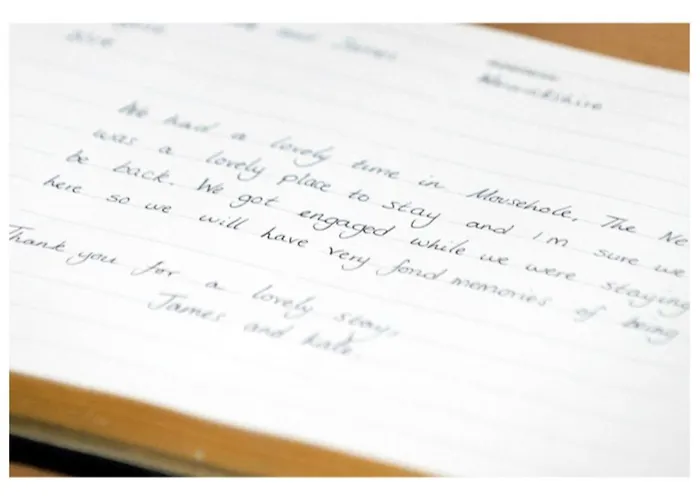 and James
Warwickshire
We had a lovely time in Mousehole. The Ne
was a lovely place to stay and I'm sure we
be back. We got engaged while we were staying
here so we will have very fond memories of being
Thank you for a lovely stay,
James and Kate